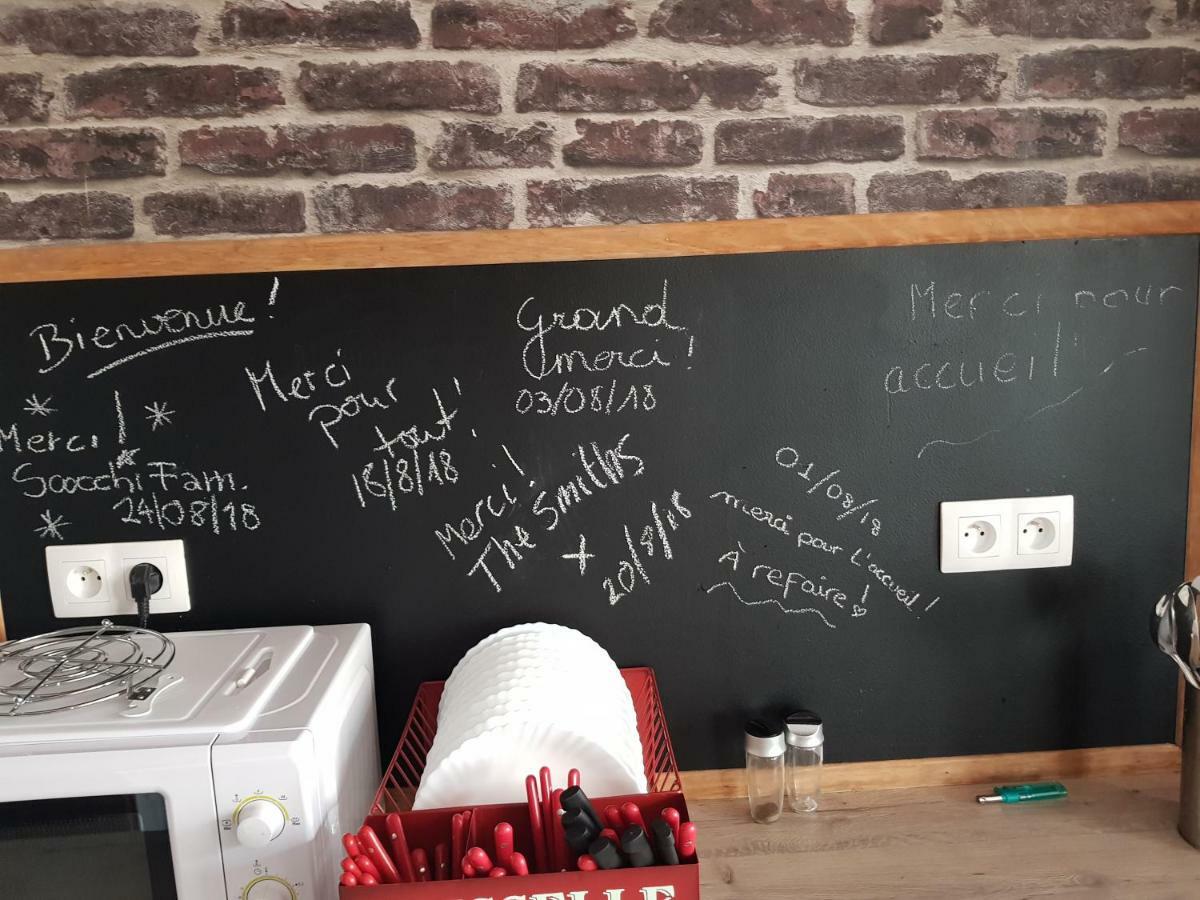 Bienvenue!
Merci!
Fam.
24/08/18
Merci
pour
tout!
18/8/18
Grand
merci!
03/08/18
Merci!
The Smiths
+
20/8/18
Merci pour
accueil!
01/08/18
merci pour l'accueil!
À refaire!